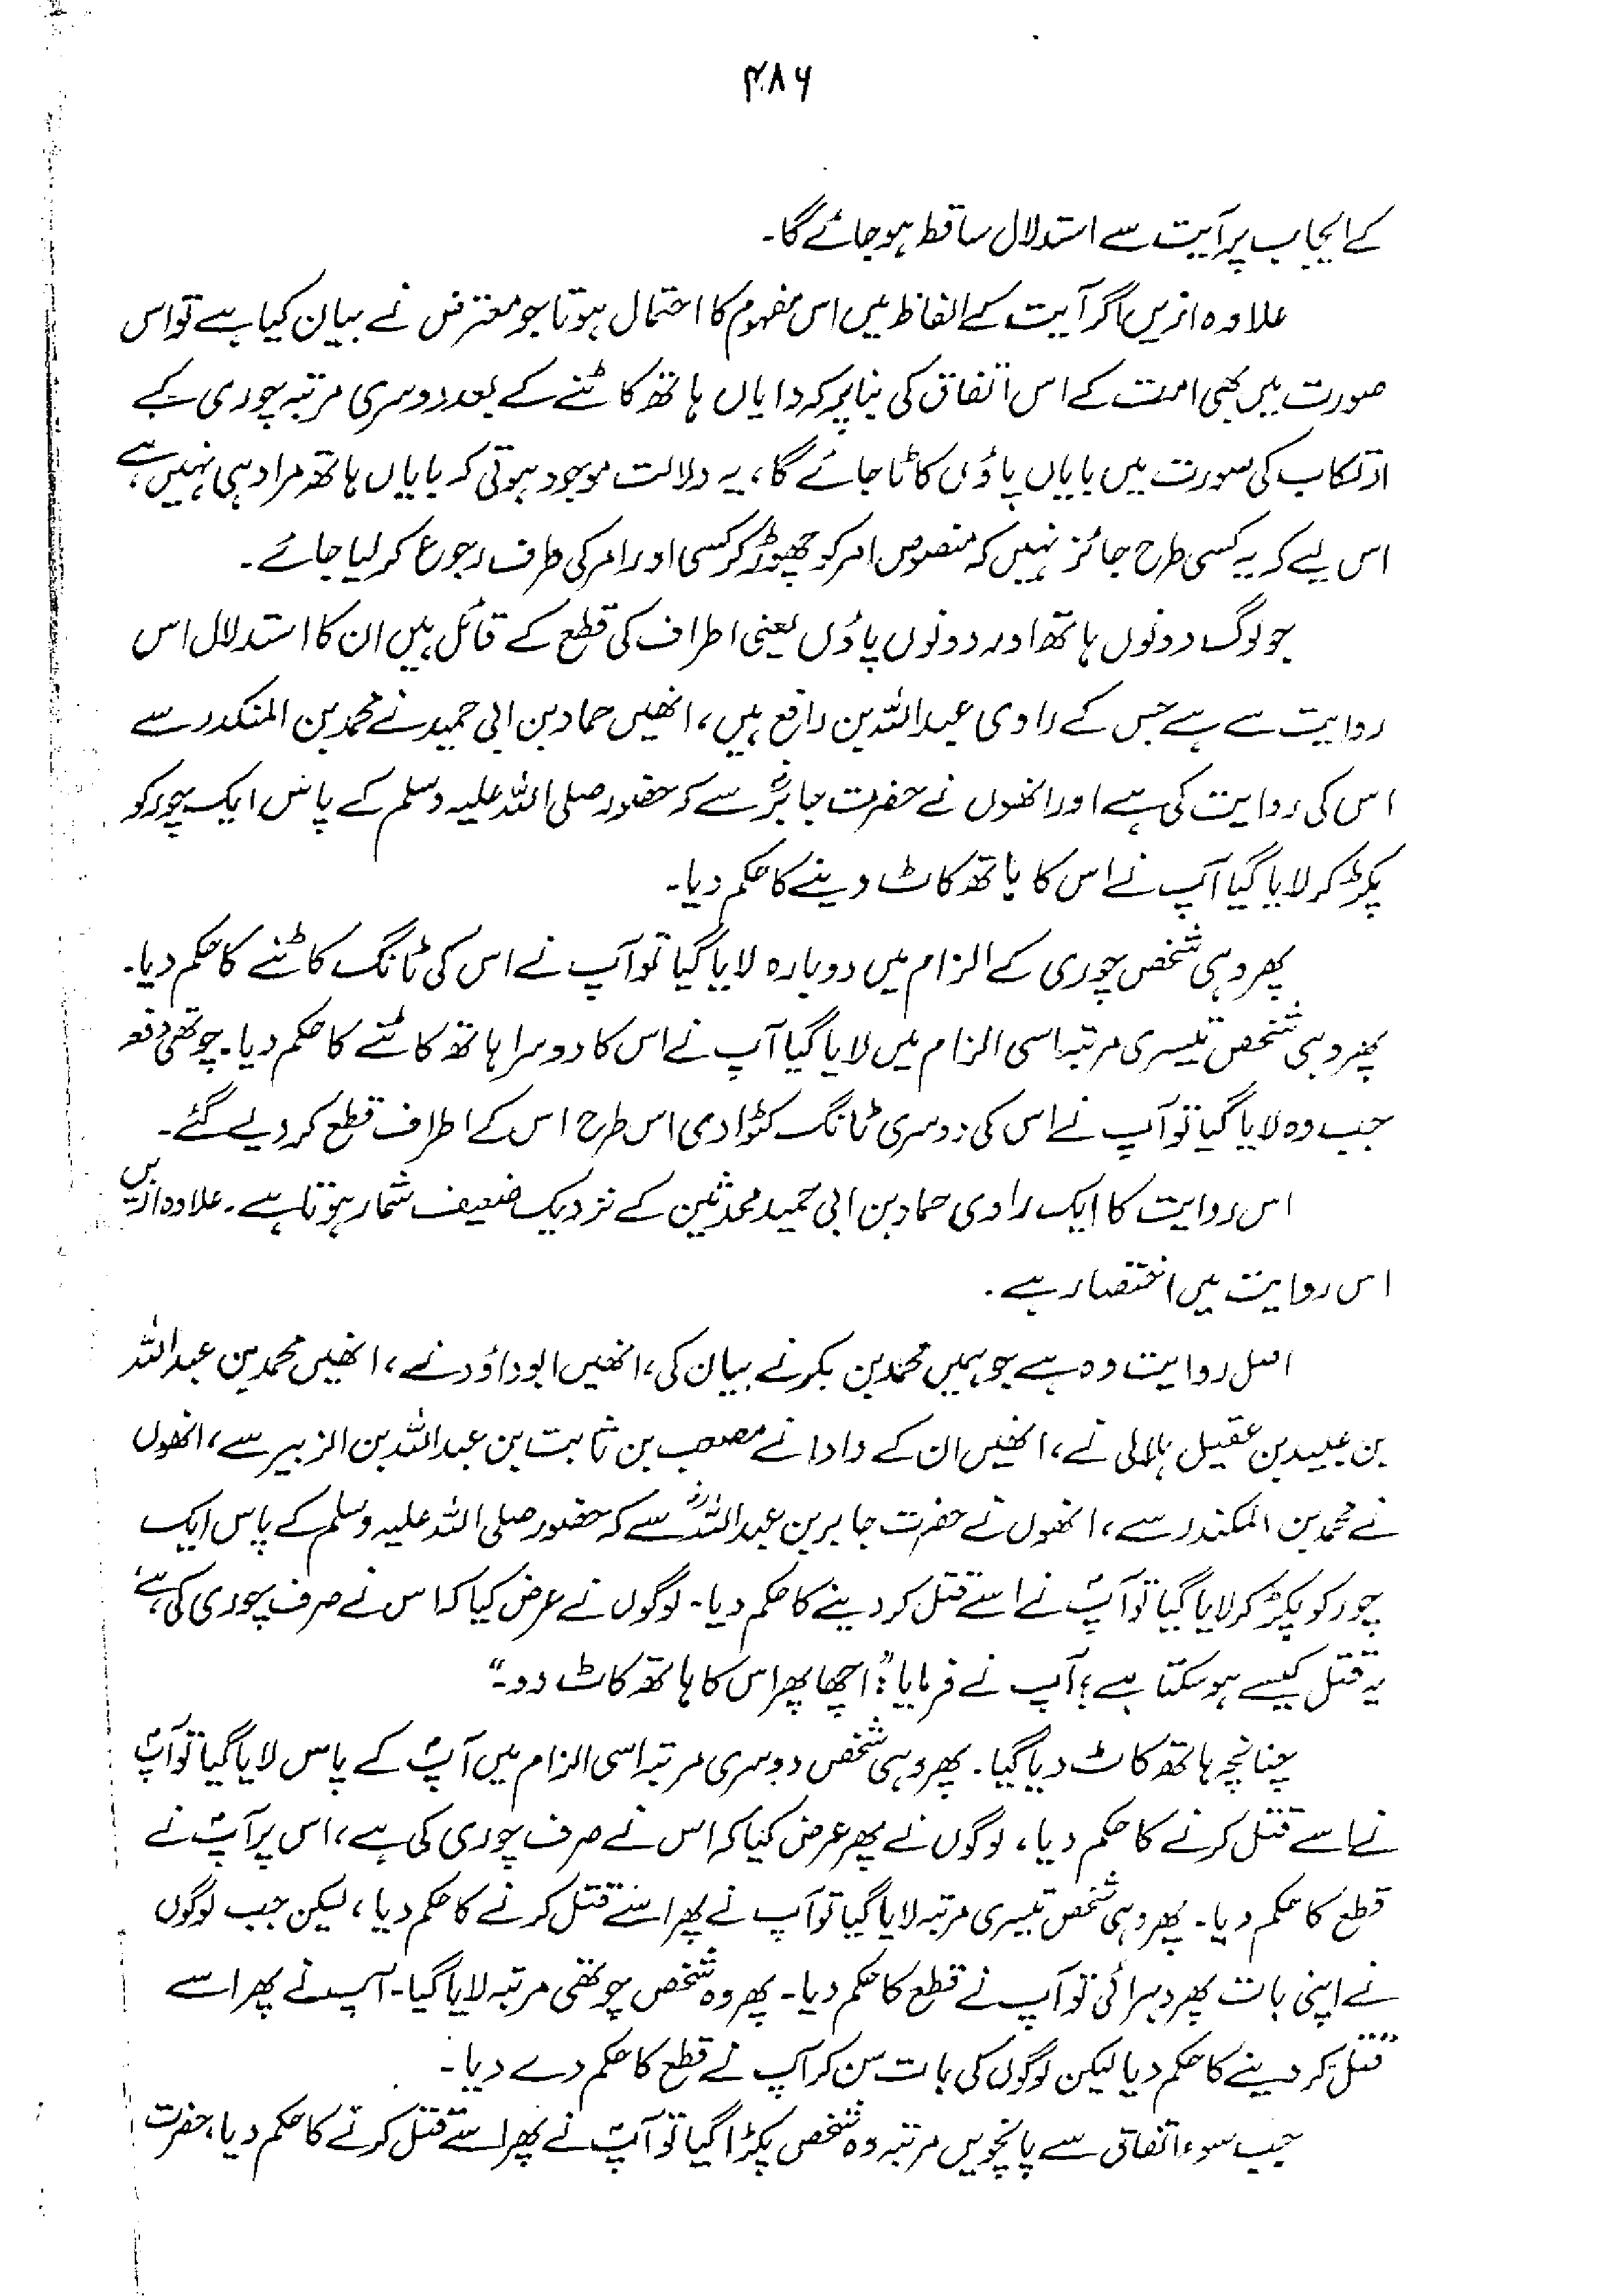 ۴۸۶
کے ایجاب پر آیت سے استدلال ساقط ہو جائے گا۔
علاوہ ازیں اگر آیت کے الفاظ میں اس مفہوم کا احتمال ہوتا جو معترض نے بیان کیا ہے تو اس
صورت میں بھی امت کے اس اتفاق کی بنا پر کہ دایاں ہاتھ کاٹنے کے بعد دوسری مرتبہ چوری کے
ارتکاب کی صورت میں بایاں پاؤں کاٹا جائے گا، یہ دلالت موجود ہوتی کہ بایاں ہاتھ مراد ہی نہیں ہے
اس لیے کہ یہ کسی طرح جائز نہیں کہ منصوص امر کو چھوڑ کر کسی اور امر کی طرف رجوع کر لیا جائے۔
جو لوگ دونوں ہاتھ اور دونوں پاؤں یعنی اطراف کی قطع کے قائل ہیں ان کا استدلال اس
روایت سے ہے جس کے راوی عبداللہ بن رافع ہیں، انھیں حماد بن ابی حمید نے محمد بن المنکدر سے
اس کی روایت کی ہے اور انھوں نے حضرت جابرؓ سے کہ حضور صلی اللہ علیہ وسلم کے پاس ایک چور کو
پکڑ کر لایا گیا آپ نے اس کا ہاتھ کاٹ دینے کا حکم دیا۔
پھر وہی شخص چوری کے الزام میں دوبارہ لایا گیا تو آپ نے اس کی ٹانگ کاٹنے کا حکم دیا۔
پھر وہی شخص تیسری مرتبہ اسی الزام میں لایا گیا آپ نے اس کا دوسرا ہاتھ کاٹنے کا حکم دیا۔ چوتھی دفعہ
جب وہ لایا گیا تو آپ نے اس کی دوسری ٹانگ کٹوا دی اس طرح اس کے اطراف قطع کر دیے گئے۔
اس روایت کا ایک راوی حماد بن ابی حمید محدثین کے نزدیک ضعیف شمار ہوتا ہے۔ علاوہ ازیں
اس روایت میں اختصار ہے۔
اصل روایت وہ ہے جو ہمیں محمد بن بکر نے بیان کی، انھیں ابوداؤد نے، انھیں محمد بن عبداللہ
بن عبید بن عقیل ہلالی نے، انھیں ان کے دادا نے مصعب بن ثابت بن عبداللہ بن الزبیر سے، انھوں
نے محمد بن المکندر سے، انھوں نے حضرت جابر بن عبداللہؓ سے کہ حضور صلی اللہ علیہ وسلم کے پاس ایک
چور کو پکڑ کر لایا گیا تو آپؐ نے اسے قتل کر دینے کا حکم دیا۔ لوگوں نے عرض کیا کہ اس نے صرف چوری کی ہے
یہ قتل کیسے ہو سکتا ہے؟ آپ نے فرمایا: "اچھا پھر اس کا ہاتھ کاٹ دو۔"
چنانچہ ہاتھ کاٹ دیا گیا۔ پھر وہی شخص دوسری مرتبہ اسی الزام میں آپؐ کے پاس لایا گیا تو آپؐ
نے اسے قتل کرنے کا حکم دیا، لوگوں نے پھر عرض کیا کہ اس نے صرف چوری کی ہے، اس پر آپؐ نے
قطع کا حکم دیا۔ پھر وہی شخص تیسری مرتبہ لایا گیا تو آپ نے پھر اسے قتل کرنے کا حکم دیا، لیکن جب لوگوں
نے اپنی بات پھر دہرائی تو آپ نے قطع کا حکم دیا۔ پھر وہ شخص چوتھی مرتبہ لایا گیا۔ آپ نے پھر اسے
قتل کر دینے کا حکم دیا لیکن لوگوں کی بات سن کر آپ نے قطع کا حکم دے دیا۔
جب سوء اتفاق سے پانچویں مرتبہ وہ شخص پکڑا گیا تو آپؐ نے پھر اسے قتل کرنے کا حکم دیا، حضرت